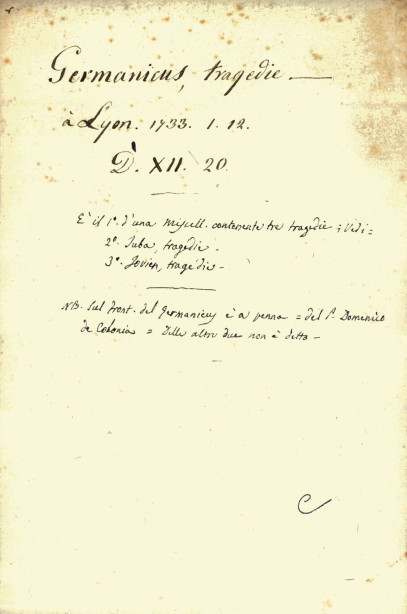 Germanicus, tragedie —
à Lyon. 1733. 1. 12.
D. XII. 20
E' il 1º. d'una Miscell. contenente tre tragedie; Vedi =
2º. Juba, tragédie -
3º. Jovien, tragédie -
NB. Sul front. del Germanicus è a penna = del P. Domenico
de Colonia = Delle altre due non è detto -
C